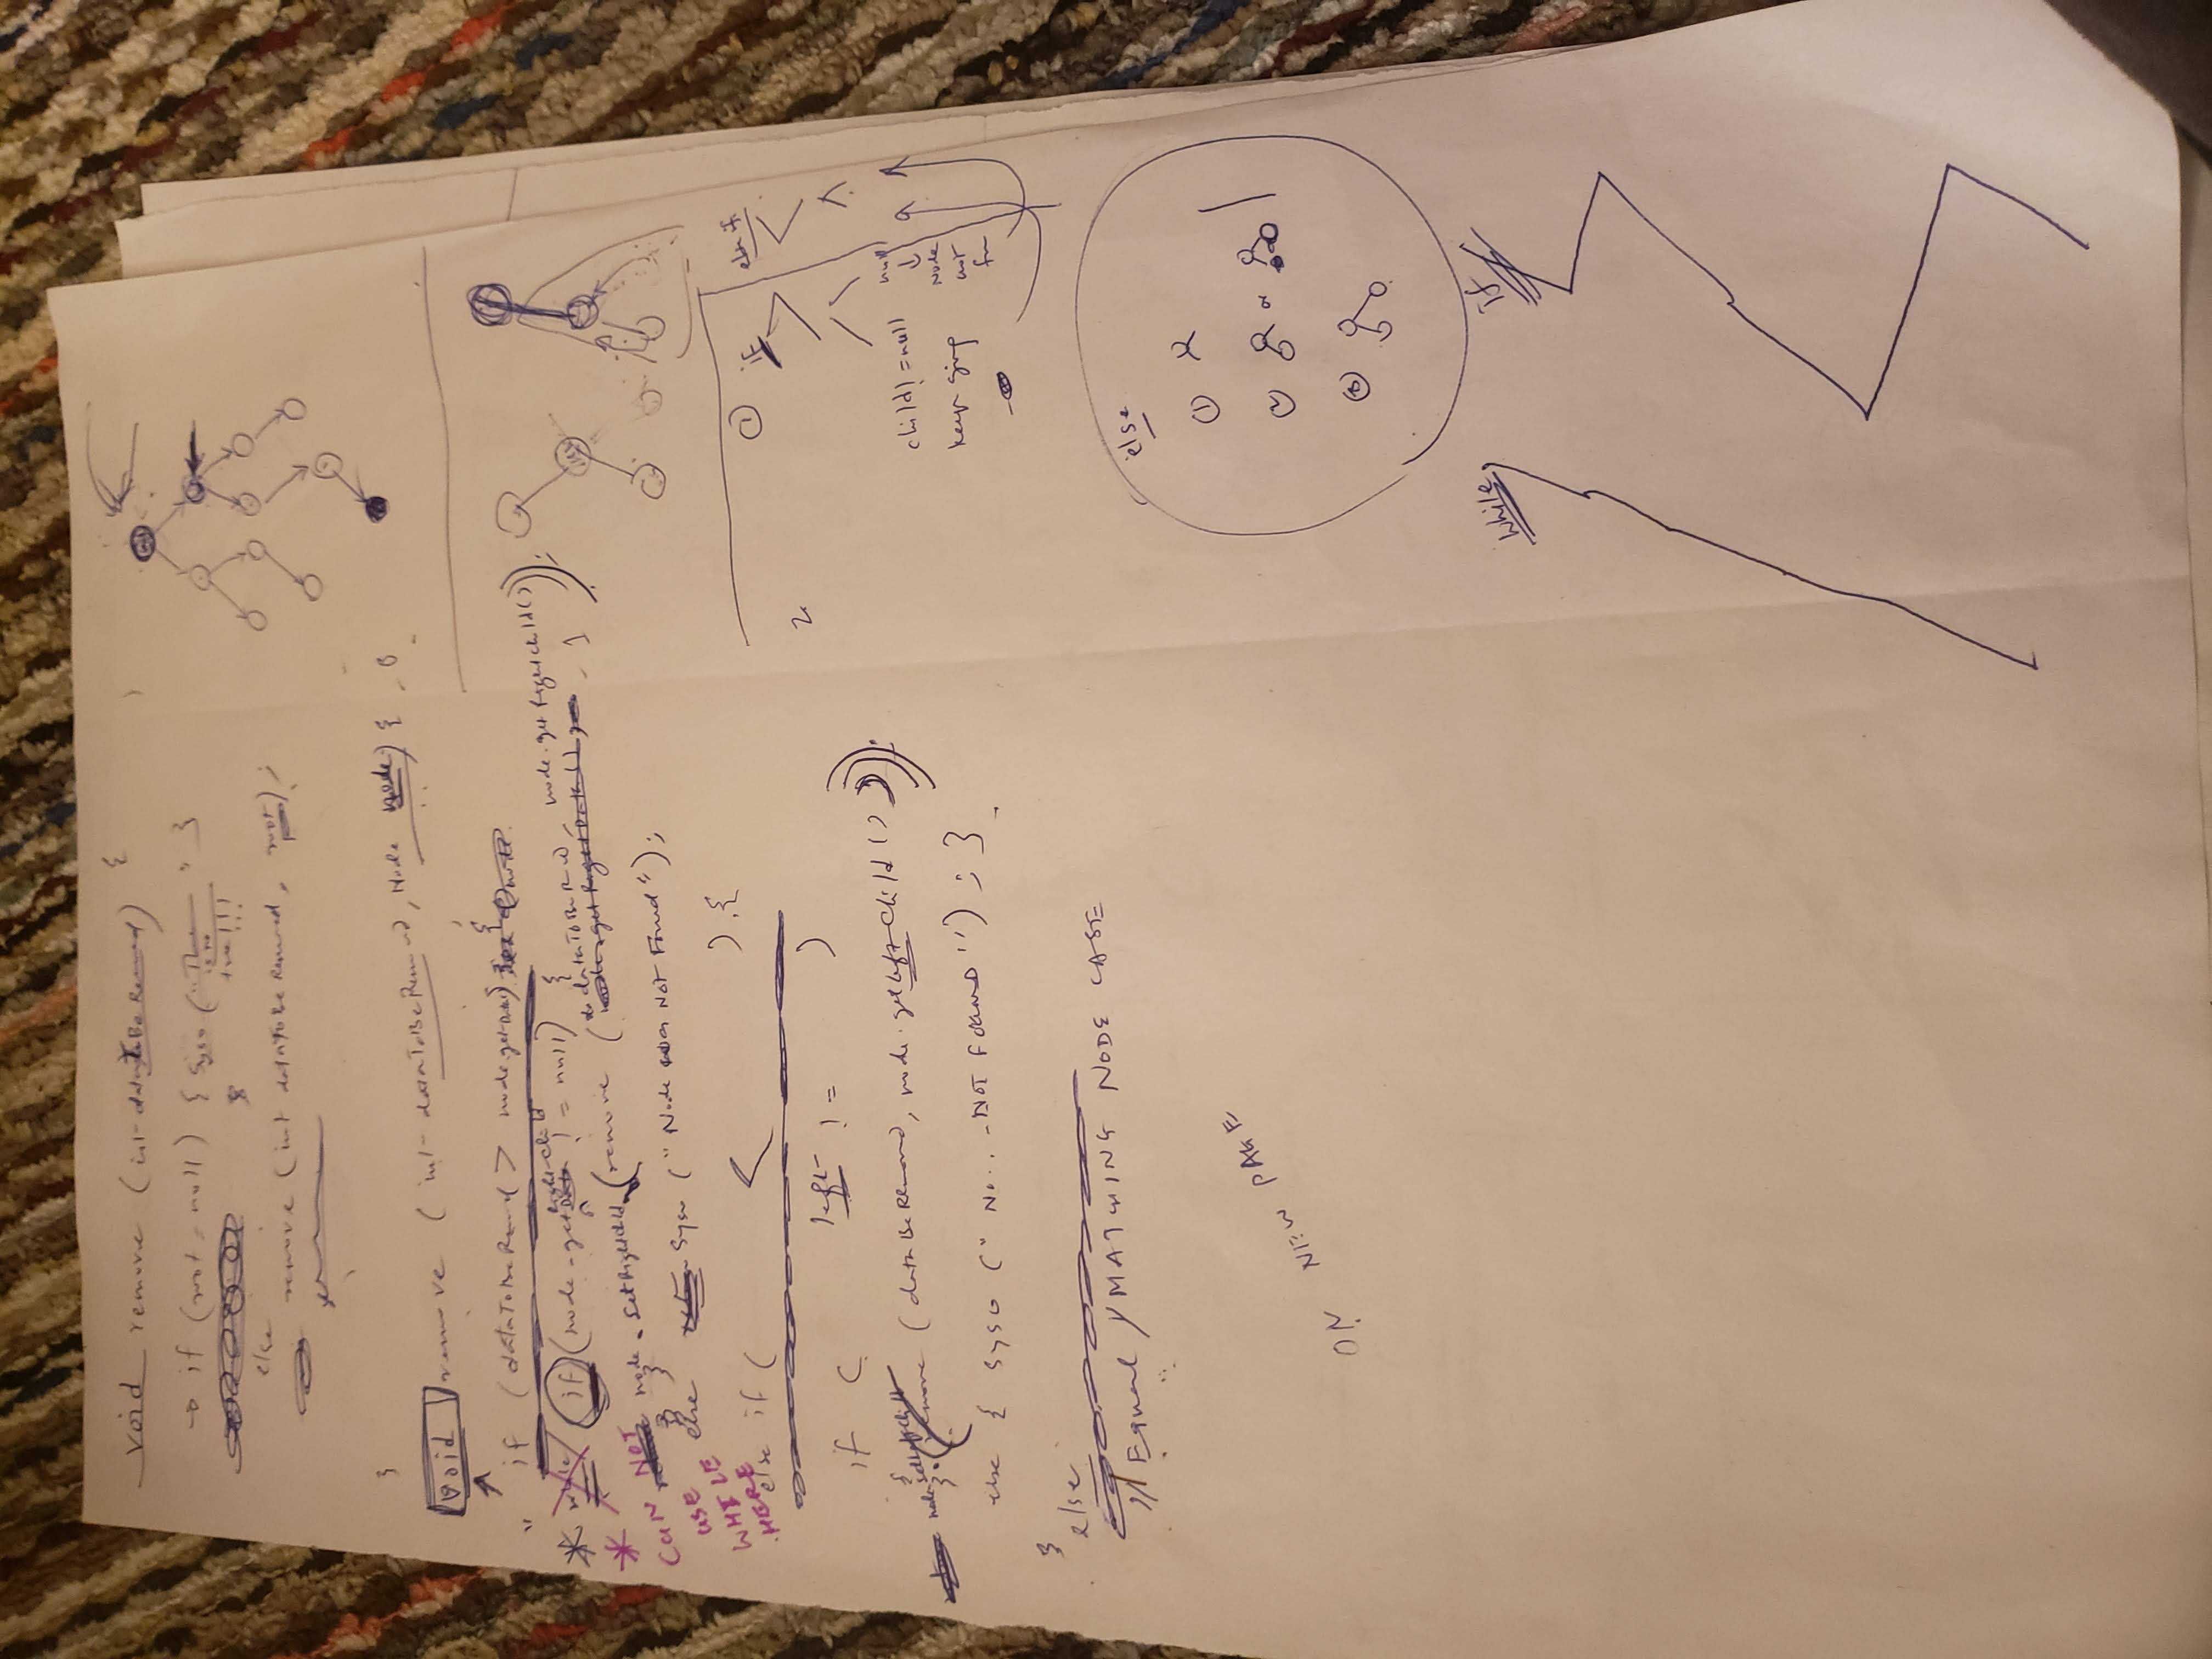 void remove (int dataToBeRemoved) {
if (root = null) { Syso ("There is no tree!!!" }
else
remove (int dataToBeRemoved, root);
}
void remove (int dataToBeRemoved, Node node) {
if (dataToBeRemoved > node.getData) {
while if (node.getRightChild != null) {
node.setRightChild (remove (dataToBeRemoved, node.getRightChild()));
CAN NOT
USE
WHILE
HERE
} else Syso ("Node was Not Found");
else if ( < ) {
if ( left != )
{ node.setLeftChild (remove (dataBeRemoved, node.getLeftChild()));
}
else { Syso ("No... NOT FOUND"); }
}
else
// Equal / MATCHING NODE CASE
ON NEW PAGE
1 if > else if <
2.
child != null
keep going
null
Node
not
else
1
2 or
3
while if